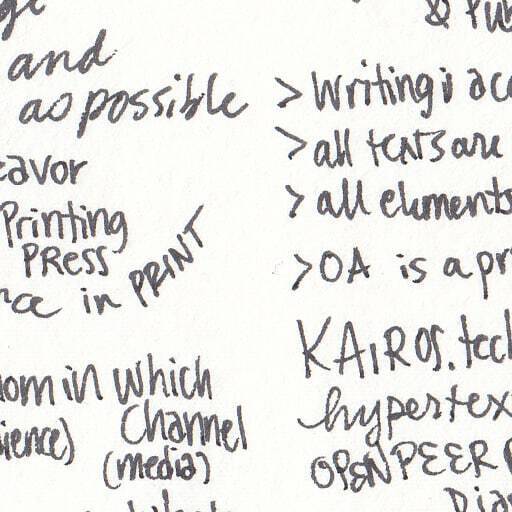 and
as possible
eavor
Printing
PRESS
in PRINT
in which
Channel
(media)
& Pub
> Writing is acc
> all texts are
> all elements
> OA is a pr
KAIROS.tech
hypertex
OPEN PEER